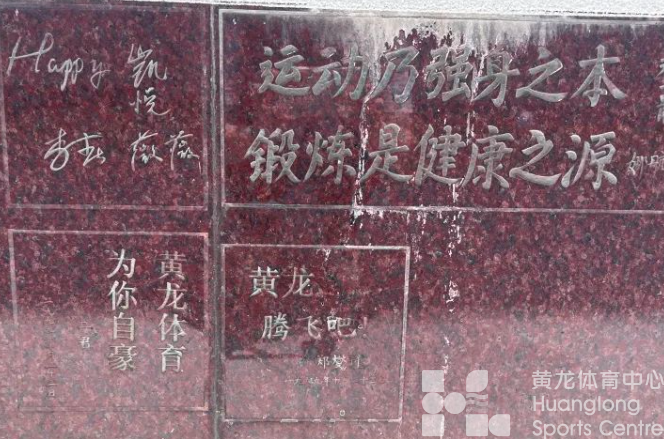 Happy 凯悦
李春 薇薇
运动乃强身之本
锻炼是健康之源
黄龙体育
为你自豪
黄龙
腾飞吧
黄龙体育中心
Huanglong
Sports Centre